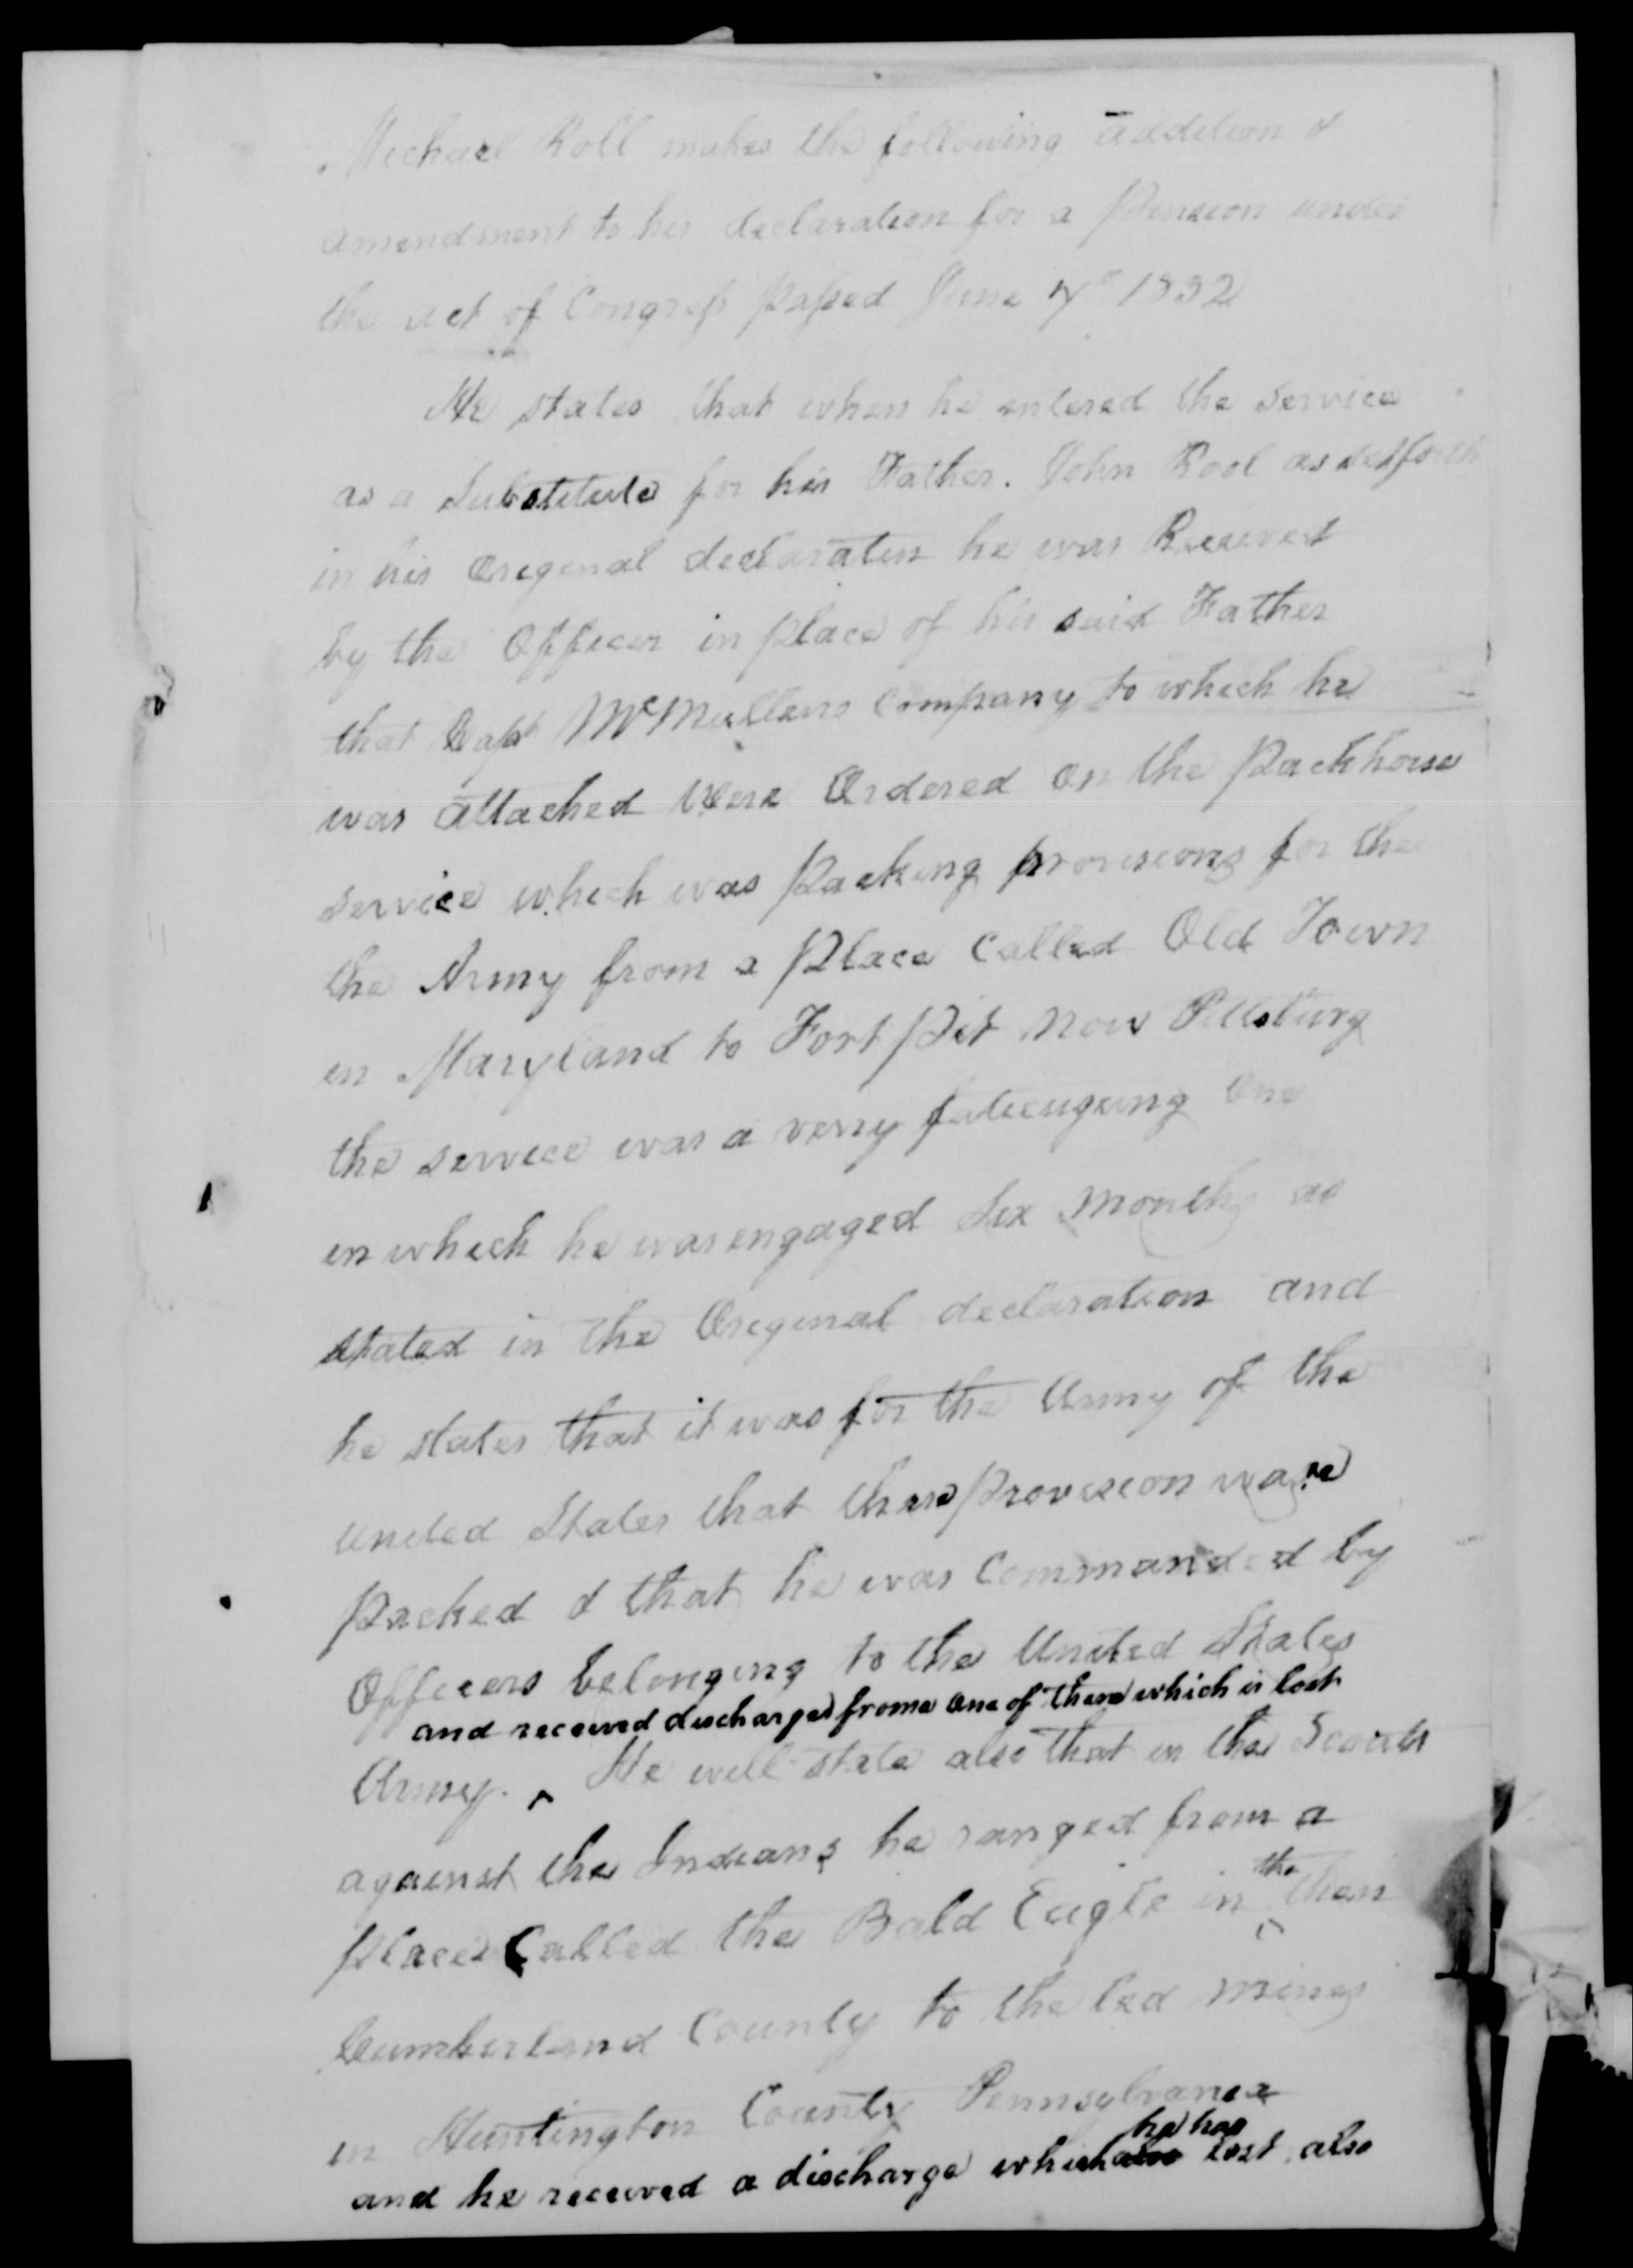 Michael Roll makes the following addition &
amendment to his declaration for a Pension under
the act of Congress Passed June 7th 1832
He states that when he entered the service
as a Substitute for his Father. John Rool as setforth
in his Original declaration he was Received
by the Officer in place of his said Father
that Capt McMullens company to which he
was attached were Ordered on the Packhorse
service which was Packing provisions for the
the Army from a Place Called Old Town
in Maryland to Fort Pit now Pittsburg
the service was a verry fatieuguing One
in which he was engaged Six Months as
stated in the Original declaration and
he states that it was for the Army of the
united States that these Provision ware
Packed & that he was Commanded by
Officers belonging to the United States
and received discharged frome one of them which is lost
Army. ^ He will state also that in the Scouts
against the Indians he ranged from a
place Called the Bald Eagle in ^ the then
Cumberland County to the led mines
in Huntington County Pennsylvania
and he received a discharge which he has lost also